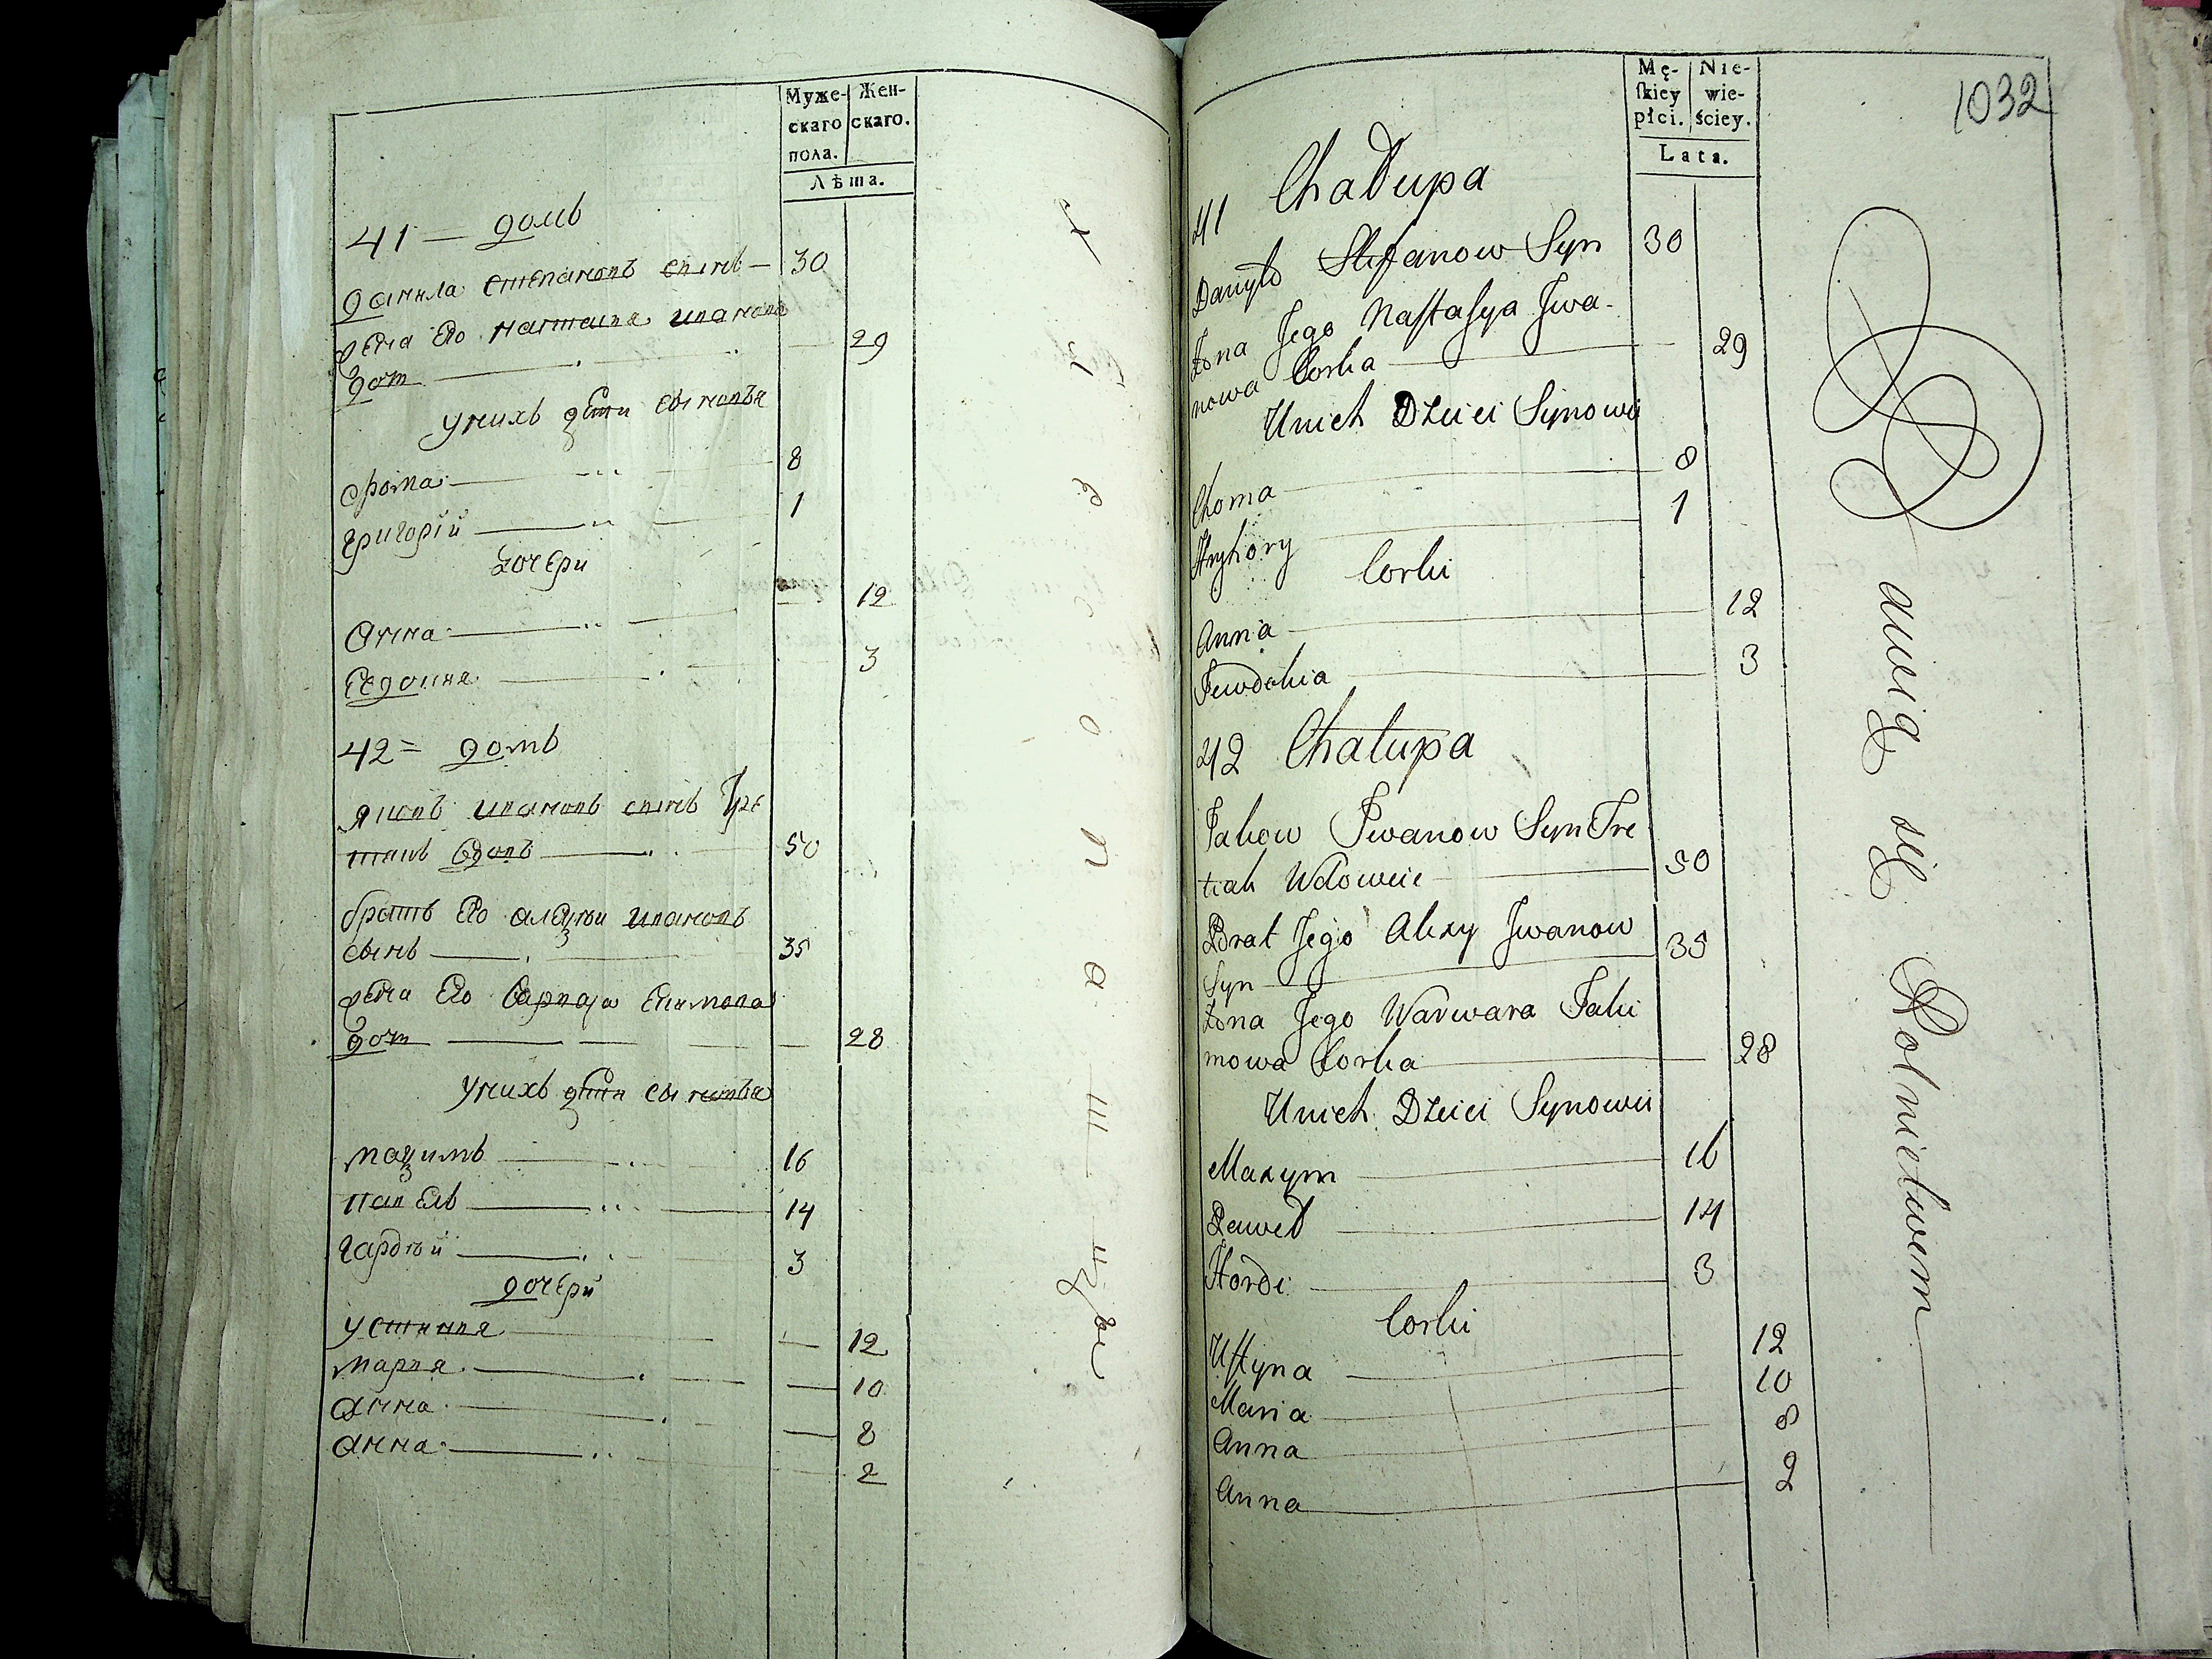 Муже-
скаго
пола.
Жен-
скаго.
Лѣта.
41 — домъ
Данила Степановъ сынъ — 30
жена Его Настасия иванова
доч — 29
У нихъ дети сыновья
Фома — 8
Григорий — 1
дочери
Анна — 12
Евдокия — 3
42 = домъ
Яковъ ивановъ сынъ Тре
тякъ вдовъ — 50
братъ Его алеѯѣй ивановъ
сынъ — 35
жена Его Варвара Екимова
доч — 28
У нихъ дети сыновья
маѯимъ — 16
павелъ — 14
гардѣй — 3
дочери
устиния — 12
мария — 10
анна — 8
анна — 2
1032
Mę-
ſkiey
płci.
Nie-
wie-
ściey.
Lata.
41 Chałupa
Danyło Stefanow Syn 30
Zona Jego Naſtaſya Jwa-
nowa Corka 29
Unich Dzieci Synowie
Choma 8
Hryhory 1
Corki
Anna 12
Jewdokia 3
42 Chałupa
Jakow Jwanow Syn Tre
tiak Wdowiec 50
Brat Jego Alexy Jwanow
Syn 35
Zona Jego Warwara Jaki
mowa Corka 28
Unich Dzieci Synowie
Maxym 16
Paweł 14
Hordi 3
Corki
Uſtyna 12
Maria 10
Anna 8
Anna 2
się Rolnictwem